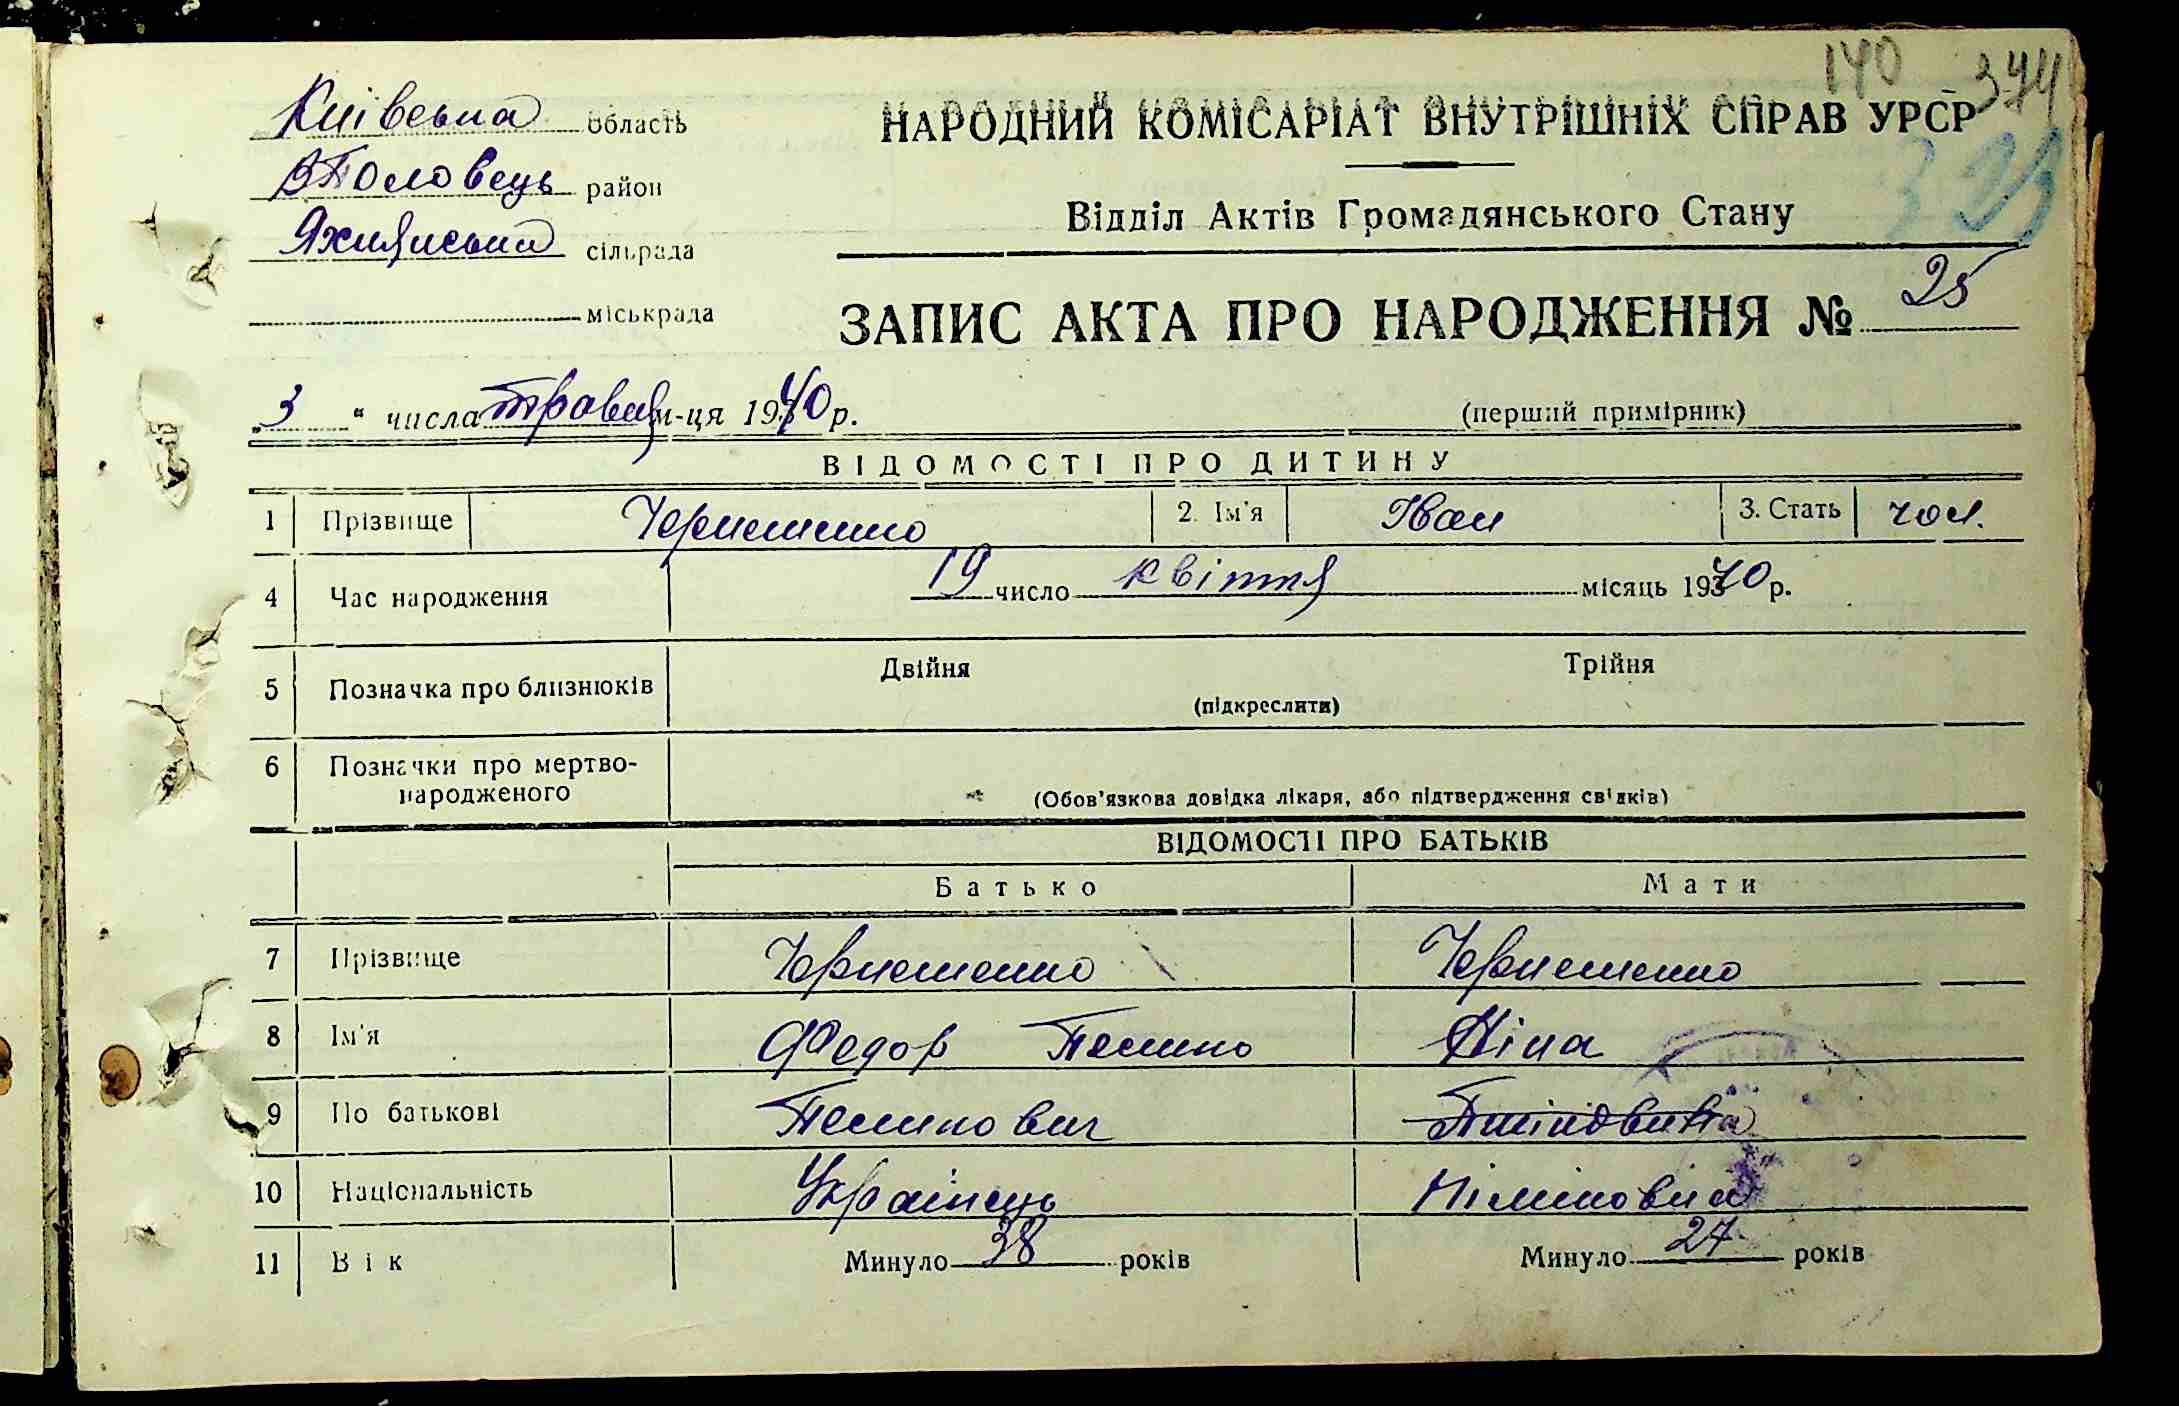 140 374
Київська область
В Половець район
Яхнянська сільрада
міськрада
НАРОДНИЙ КОМІСАРІАТ ВНУТРІШНІХ СПРАВ УРСР
323
Відділ Актів Громадянського Стану
ЗАПИС АКТА ПРО НАРОДЖЕННЯ № 25
„3“ числа травня м-ця 1940 р.
(перший примірник)
ВІДОМОСТІ ПРО ДИТИНУ
1 Прізвище Чернешенко 2. Ім'я Іван 3. Стать чол.
4 Час народження 19 число квіття місяць 1940 р.
5 Позначка про близнюків Двійня Трійня
(підкреслити)
6 Позначки про мертво-
народженого (Обов'язкова довідка лікаря, або підтвердження свідків)
ВІДОМОСТІ ПРО БАТЬКІВ
Батько Мати
7 Прізвище Чернешенко Чернешенко
8 Ім'я Федор Ніна
9 По батькові
10 Національність Українець
11 Вік Минуло 38 років Минуло 27 років